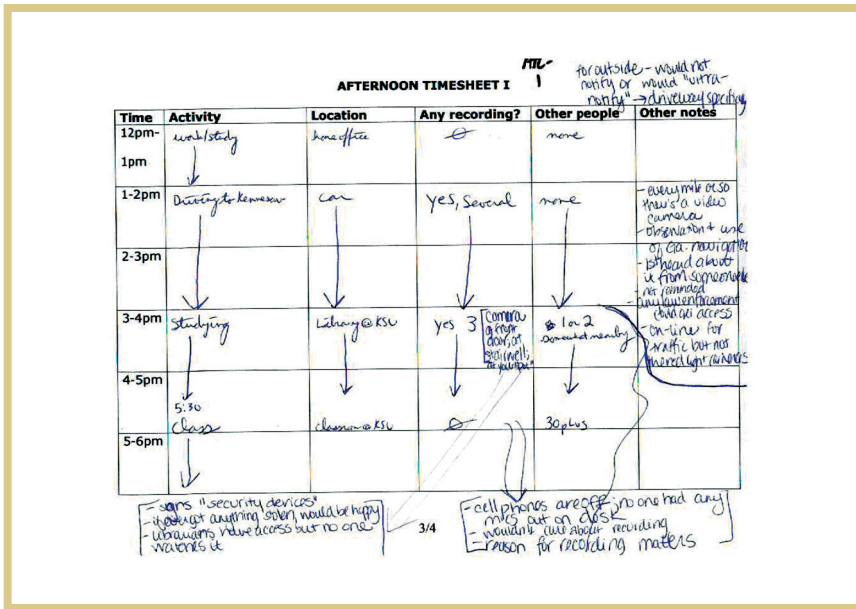 MTL-
1
for outside - would not
notify or would "ultra-
notify" → driveway specifically
AFTERNOON TIMESHEET I
Time Activity Location Any recording? Other people Other notes
12pm- work/study home office ∅ none
1pm
1-2pm Driving to Kennesaw car yes, several none
- every mile or so
there's a video
camera
- observation + use
of Ga. navigator
- 1st heard about
it from someone else
- not reminded
- any law enforcement
could get access
- on-line for
traffic but not
the red light cameras
2-3pm
3-4pm Studying Library @ KSU yes 3 1 or 2
somewhat nearby
camera
@ front
door, at
stairwell,
4-5pm
5:30
Class classroom @ KSU ∅ 30 plus
5-6pm
- signs "security devices"
- if caught anything stolen, would be happy
- librarians have access but no one
watches it
3/4
- cell phones are off, no one had any
mics out on desk
- wouldn't care about recording
- reason for recording matters